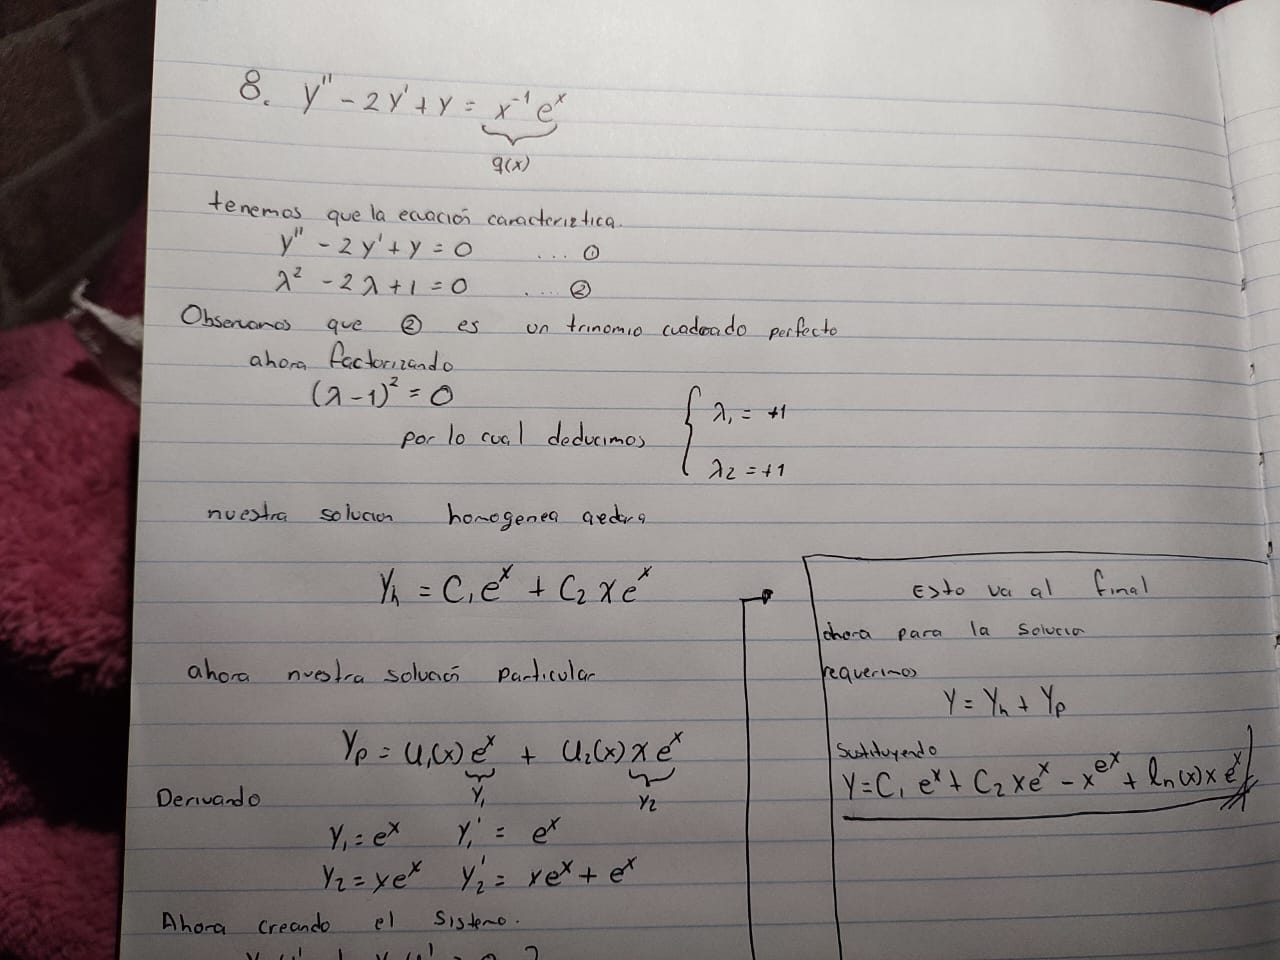 8. y'' - 2y' + y = x⁻¹ eˣ
g(x)
tenemos que la ecuación caracteriztica.
y'' - 2y' + y = 0 ... ①
λ² - 2λ + 1 = 0 .... ②
Observamos que ② es un trinomio cuadrado perfecto
ahora factorizando
(λ - 1)² = 0
por lo cual deducimos { λ₁ = +1
λ₂ = +1
nuestra solucion homogenea
Yₕ = C₁eˣ + C₂ x eˣ
ahora nuestra solució particular
Yₚ = U₁(x) eˣ + U₂(x) x eˣ
Y₁ Y₂
Derivando
Y₁ = eˣ Y₁' = eˣ
Y₂ = xeˣ Y₂' = xeˣ + eˣ
Ahora creando el sistema.
Esto va al final
ahora para la solucio
requerimos
Y = Yₕ + Yₚ
Sustituyendo
Y = C₁ eˣ + C₂ xeˣ - xeˣ + ln(x) x eˣ